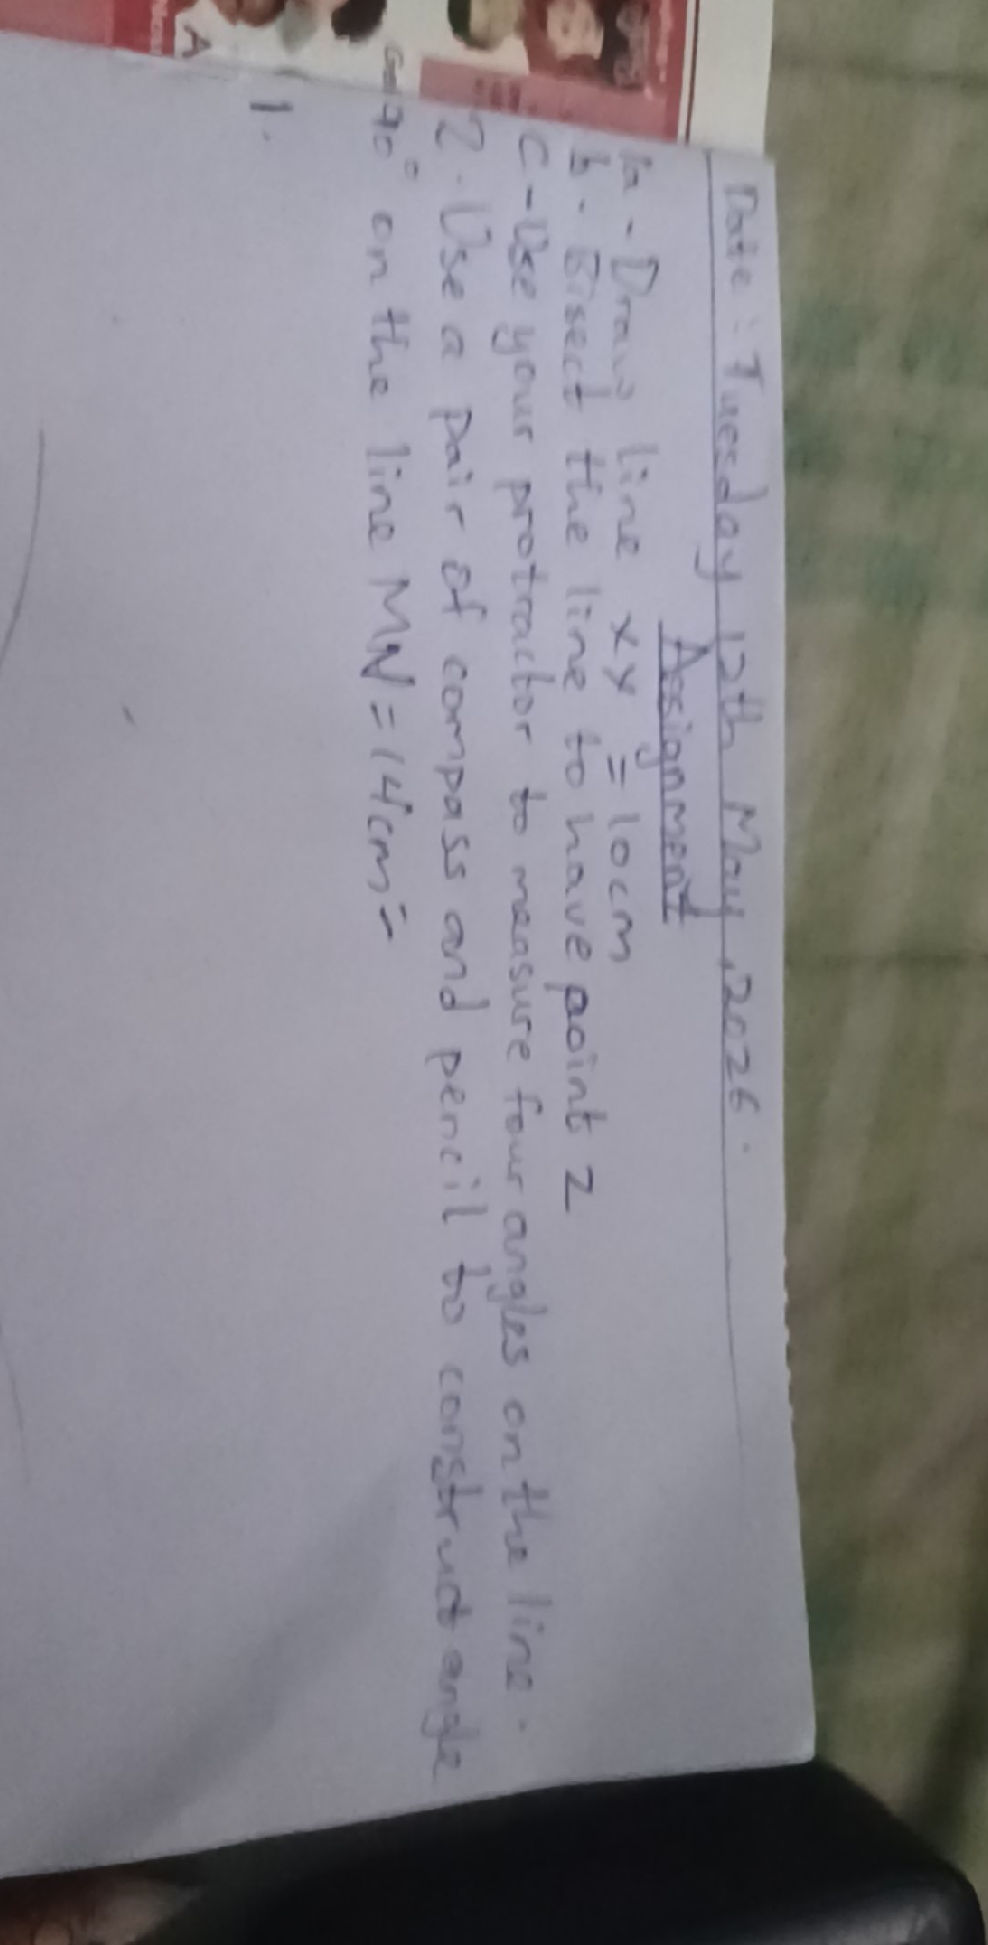 Date: Tuesday 12th May, 2026.
Assignment
1a - Draw line xy = 10cm
b - Bisect the line to have point Z
C - Use your protractor to measure four angles on the line.
2. Use a pair of compass and pencil to construct angle
90° on the line MN = 14cm =
1.
A